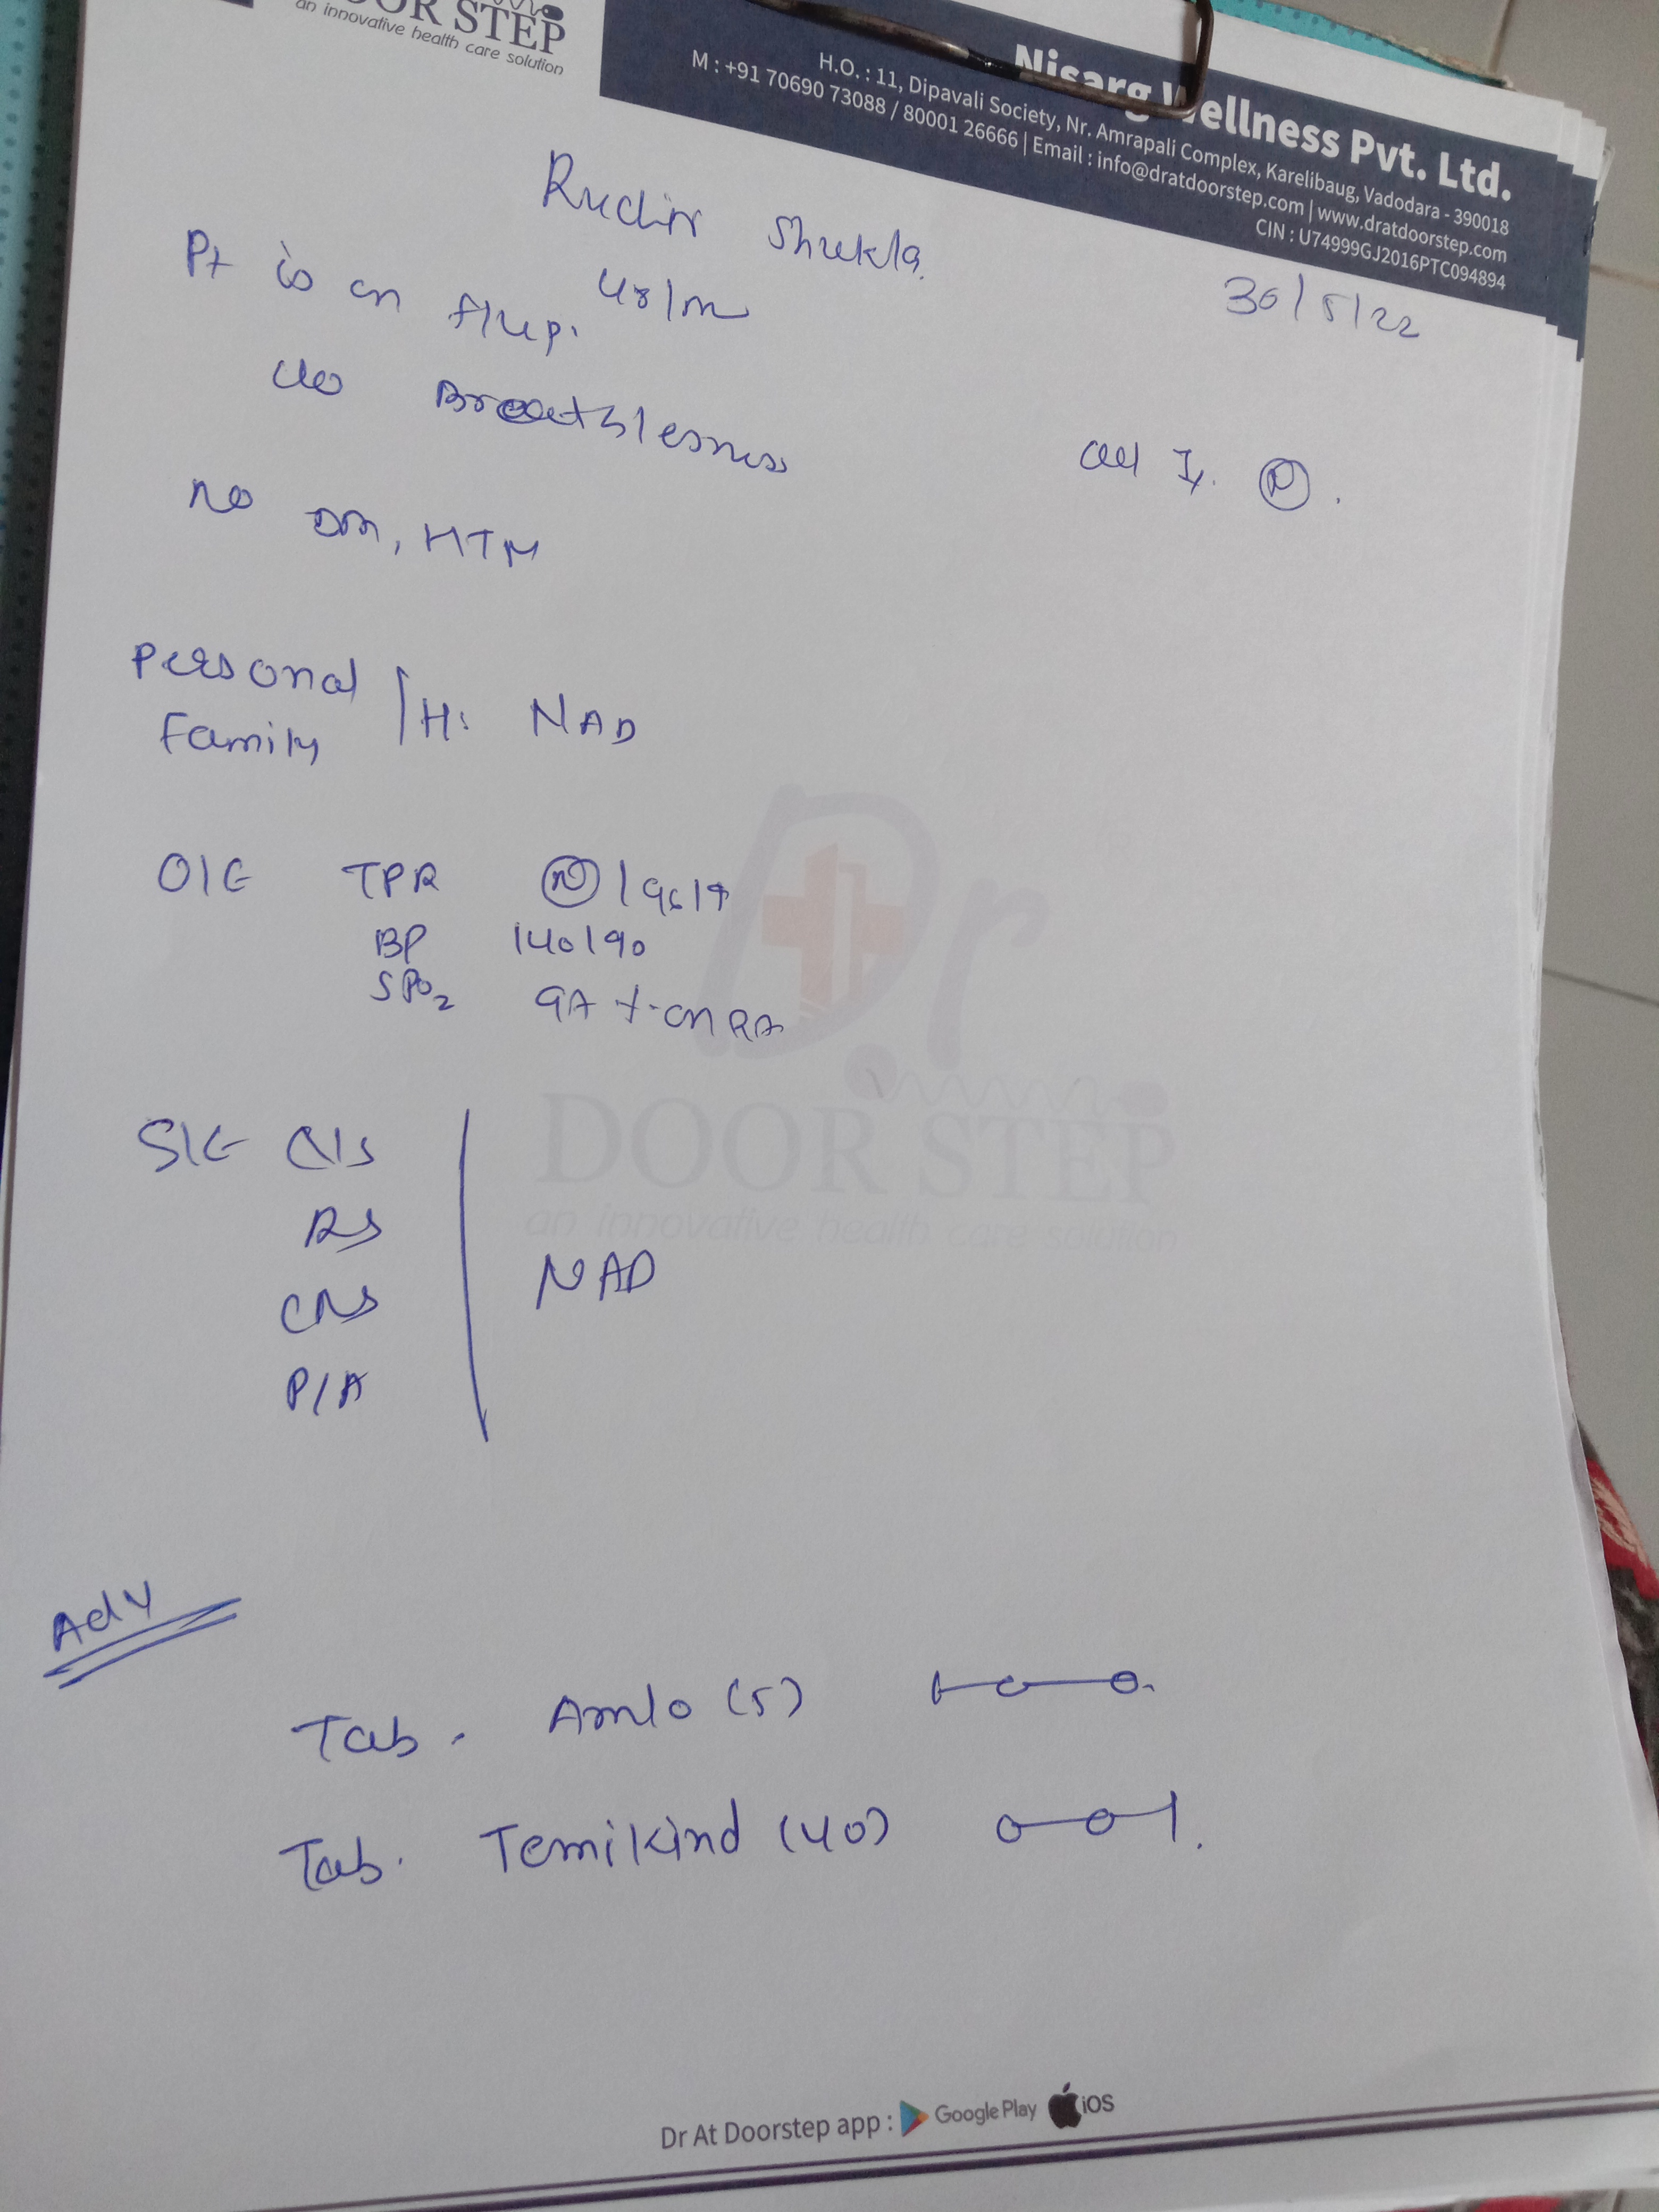 OOR STEP
an innovative health care solution
Nisarg Wellness Pvt. Ltd.
H.O. : 11, Dipavali Society, Nr. Amrapali Complex, Karelibaug, Vadodara - 390018
M : +91 70690 73088 / 80001 26666 | Email : info@dratdoorstep.com | www.dratdoorstep.com
CIN : U74999GJ2016PTC094894
Shukla
48/m
30/5/22
Pt is on
c/o Breathlessness
All Ix. (N).
No DM, HTN
Personal
Family /H: NAD
O/E TPR (N) /
BP 140/90
SPO2 on RA
S/E
RS
CNS
P/A
NAD
Dr
DOOR STEP
an innovative health care solution
Adv
Tab. Amlo (5) 1-0-0.
Tab. Temikind (40) 0-0-1.
Dr At Doorstep app : Google Play iOS